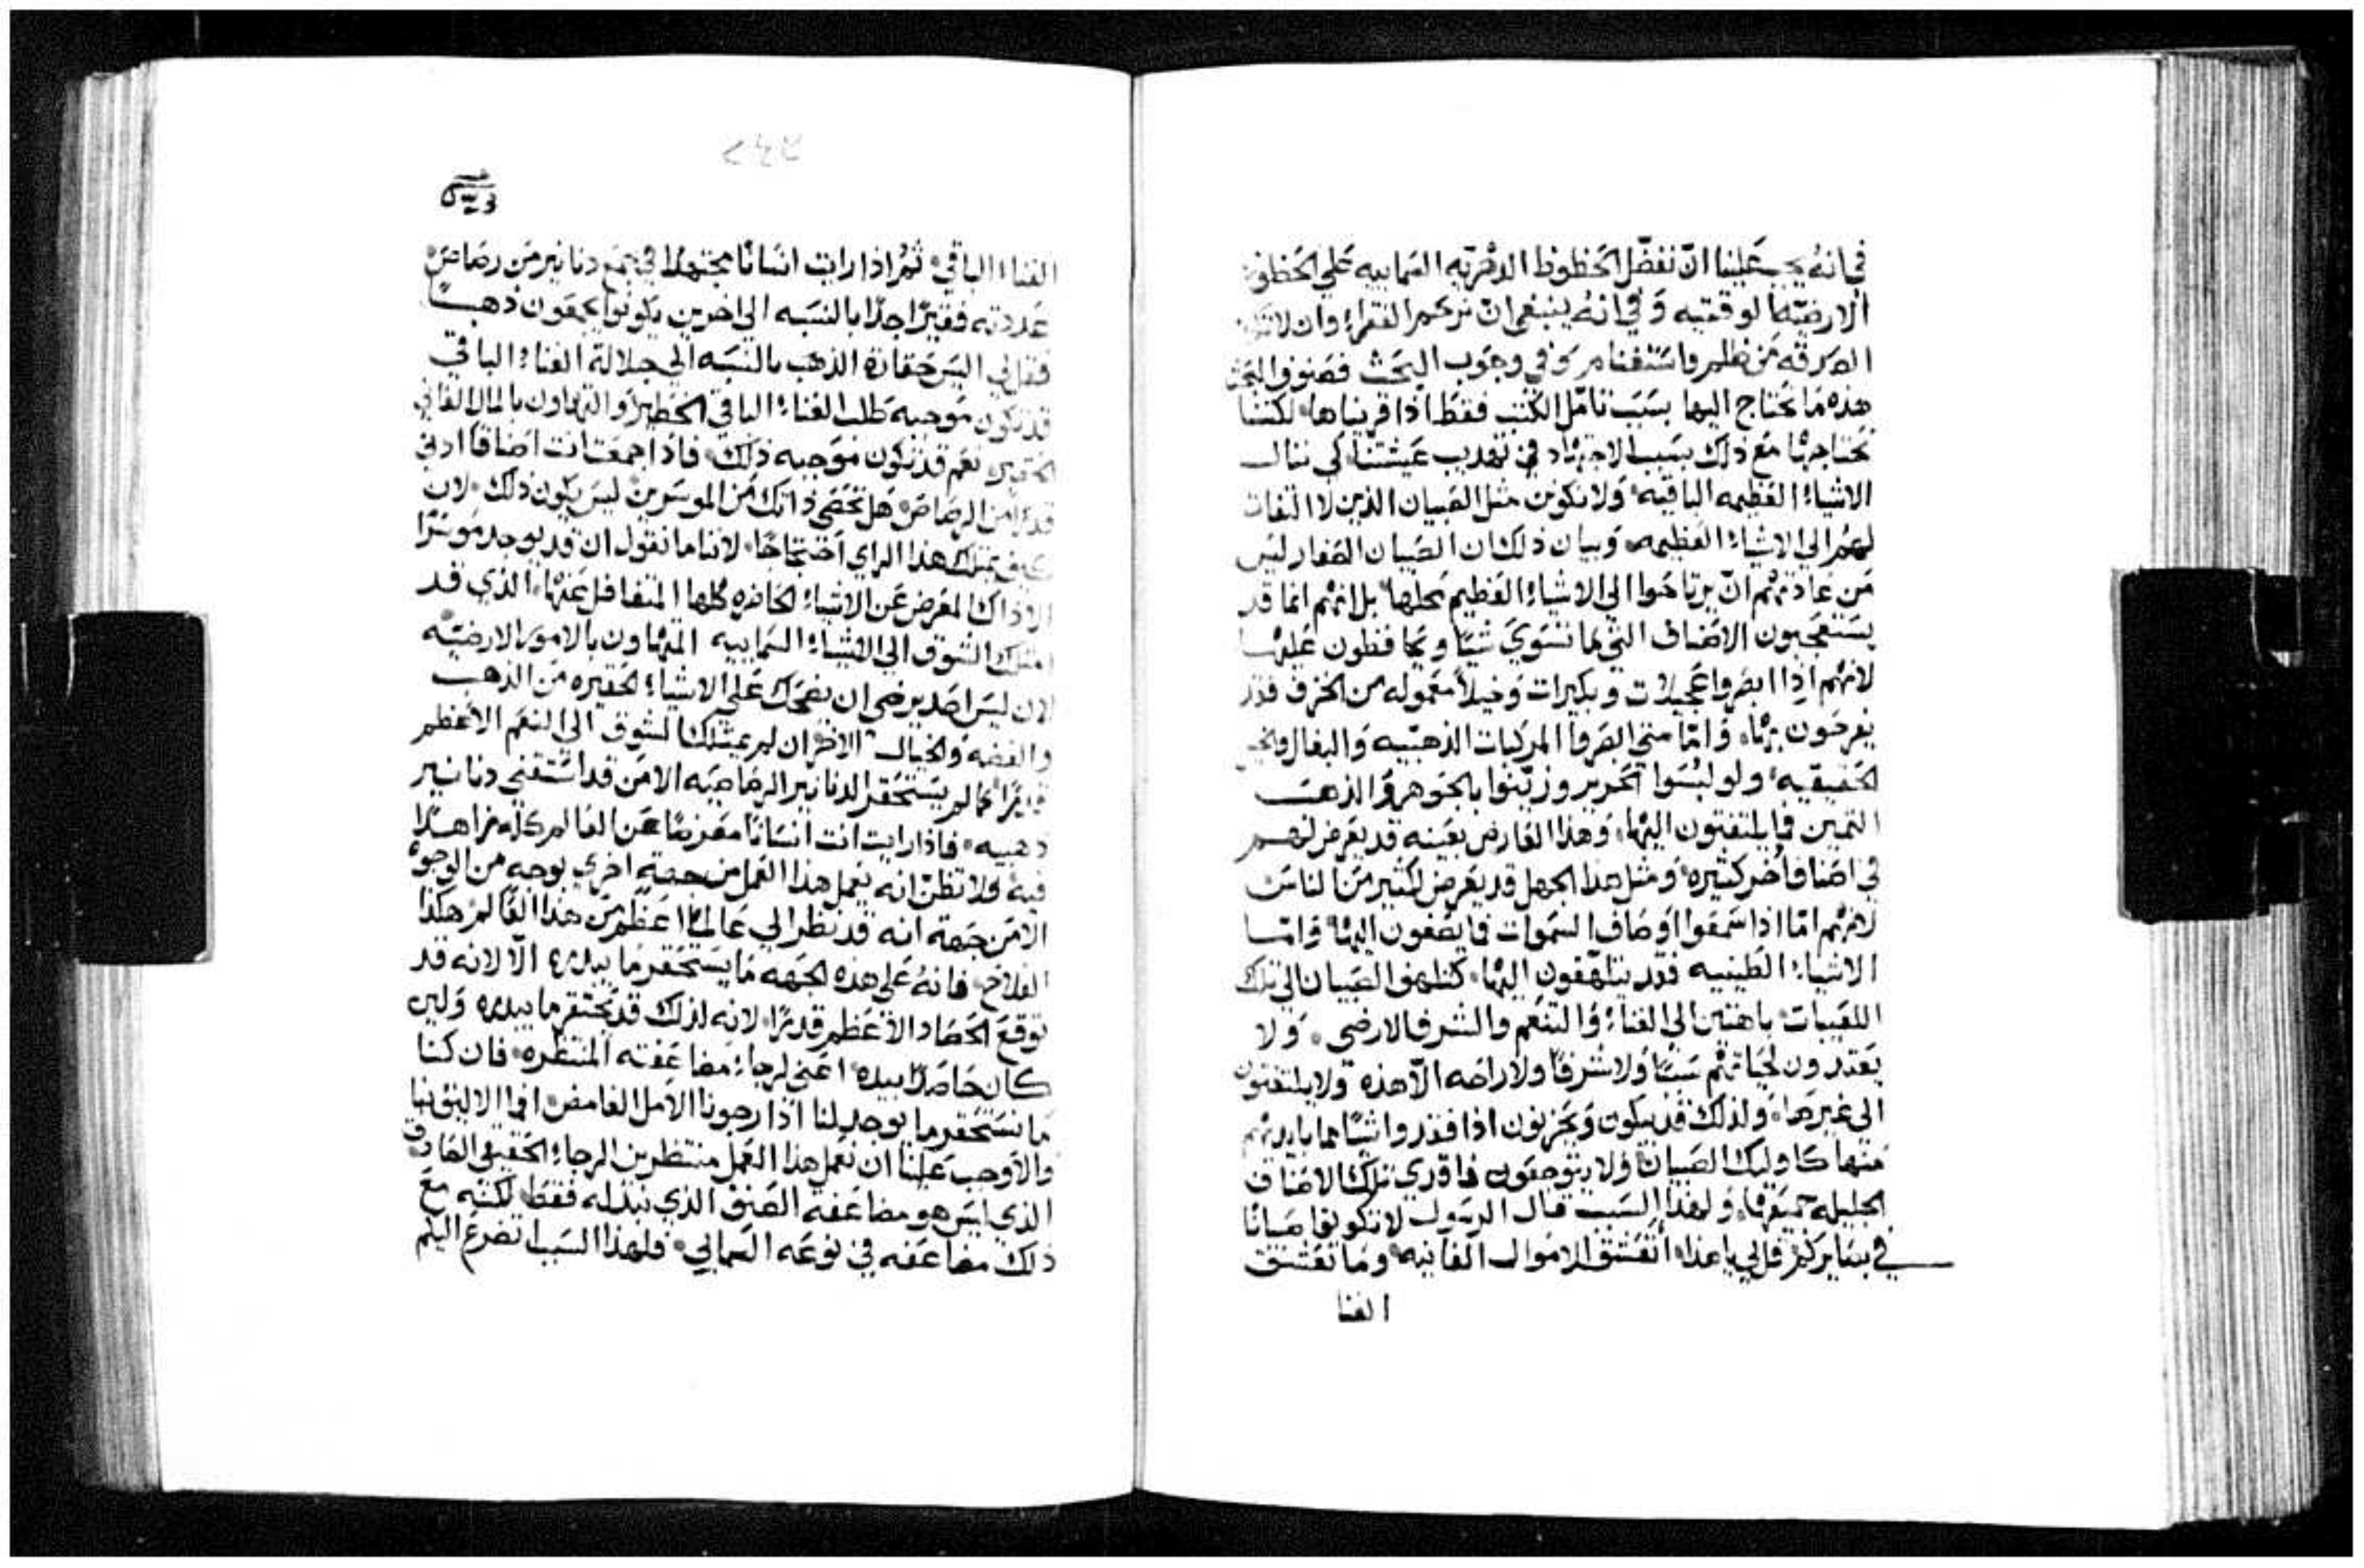 في انه يجب علينا ان نفضل الحظوظ الدهريه السماييه علي الحظوظ
الارضيه الوقتيه وفي انه ينبغي ان نرحم الفقراء وان لا تكون
الصدقه من ظلم واستغنام وفي وجوب البحث فصنوف البحث
هذه ما نحتاج اليها بسبب تامل الكتب فقط اذا قريناها لكننا
نحتاجها مع ذلك بسبب الاجتهاد في تهديب عيشتنا كي ننال
الاشياء العظيمه الباقيه ولا نكون مثل الصبيان الذين لا التفات
لهم الي الاشياء العظيمه وبيان ذلك ان الصبيان الصغار ليس
من عادتهم ان يرتاحوا الي الاشياء العظيم محلها بل انهم انما قد
يستعجبون الاصناف التي ما تسوي شيًا ويحافظون عليها
لانهم اذا ابصروا عجيلات وبكيرات وخيلاً معموله من الخزف فقد
يفرحون بها واما متي ابصروا المركبات الذهبيه والبغال والخيل
الحقيقيه ولو لبسوا الحرير وزينوا بالجوهر والذهب
الثمين فما يلتفتون اليها وهذا العارض بعينه قد يعرض لهم
في اصناف اخر كثيره ومثل هذا الجهل قد يعرض لكثير من الناس
لانهم اما اذا سمعوا اوصاف السموات فما يصغون اليها واما
الاشياء الطينيه فقد يتلهفون اليها كتلهف الصبيان الي تلك
اللعيبات باهتين الي الغناء والتنعم والشرف الارضي ولا
يعتدرون لحياتهم شيًا ولا شرفًا ولا راحه الا هذه ولا يلتفتون
الي غيرها ولذلك قد يبكون ويحزنون اذا فقدوا شيًا مما بايديهم
منها كاوليك الصبيان ولا يتوجعون
الجليله جميعها ولهذا السبب قال الرسول لا تكونوا صبيانًا
في بصايركم قل لي يا هذا اتعشق الاموال الفانيه وما تعشق
الغنا
الغناء الباقي ثم اذا رايت انسانًا مجتهدًا في جمع دنانير من رصاص
عددته فقيرًا جدًا بالنسبه الي اخرين يكونوا يجمعون ذهبًا
فقل لي اليس حقارة الذهب بالنسبه الي جلالة الغناء الباقي
قد تكون موجبه طلب الغناء الباقي الخطير والتهاون بالمال الفاني
الحقير نعم قد تكون موجبه ذلك فاذا جمعت انت اصنافًا ادني
قدرًا من الرصاص هل تحصي ذاتك من الموسرين ليس يكون ذلك لان
كيف يمتلك هذا الراي احتجاجًا لاننا ما نقول ان قد يوجد موسرًا
الا ذاك المعرض عن الاشياء الحاضره كلها المتغافل عنها الذي قد
امتلك الشوق الي الاشياء السماييه المتهاون بالامور الارضيه
لان ليس احد يرضي ان يضحك علي الاشياء الحقيره من الذهب
والفضه والخيال الاخر ان لم يمتلك الشوق الي النعم الاعظم
قدرًا كما لم يستحقر الدنانير الرصاصيه الا من قد استغني دنانير
ذهبيه فاذا رايت انت انسانًا معرضًا عن العالم كله زاهدًا
فيه فلا تظن انه يعمل هذا العمل من جهة اخري بوجه من الوجوه
الا من جهة انه قد نظر الي عالمًا اعظم من هذا العالم هكذا
الفلاح فانه علي هذه الجهه ما يستحقر ما يبدره الا لانه قد
توقع الحصاد الاعظم قدرًا لانه لذلك قد يحتقر ما يبدره ولين
كان حاصلاً بيده اعني لرجاء مضاعفته المنتظره فان كنا
ما نستحقر ما يوجد لنا اذا رجونا الامل الغامض افما الاليق بنا
والاوجب علينا ان نعمل هذا العمل منتظرين الرجاء الحقيقي الصادق
الذي ليس هو مضاعفة الصنف الذي نبذله فقط لكنه مع
ذلك مضاعفه في نوعه السمايي فلهذا السبب اتضرع اليكم